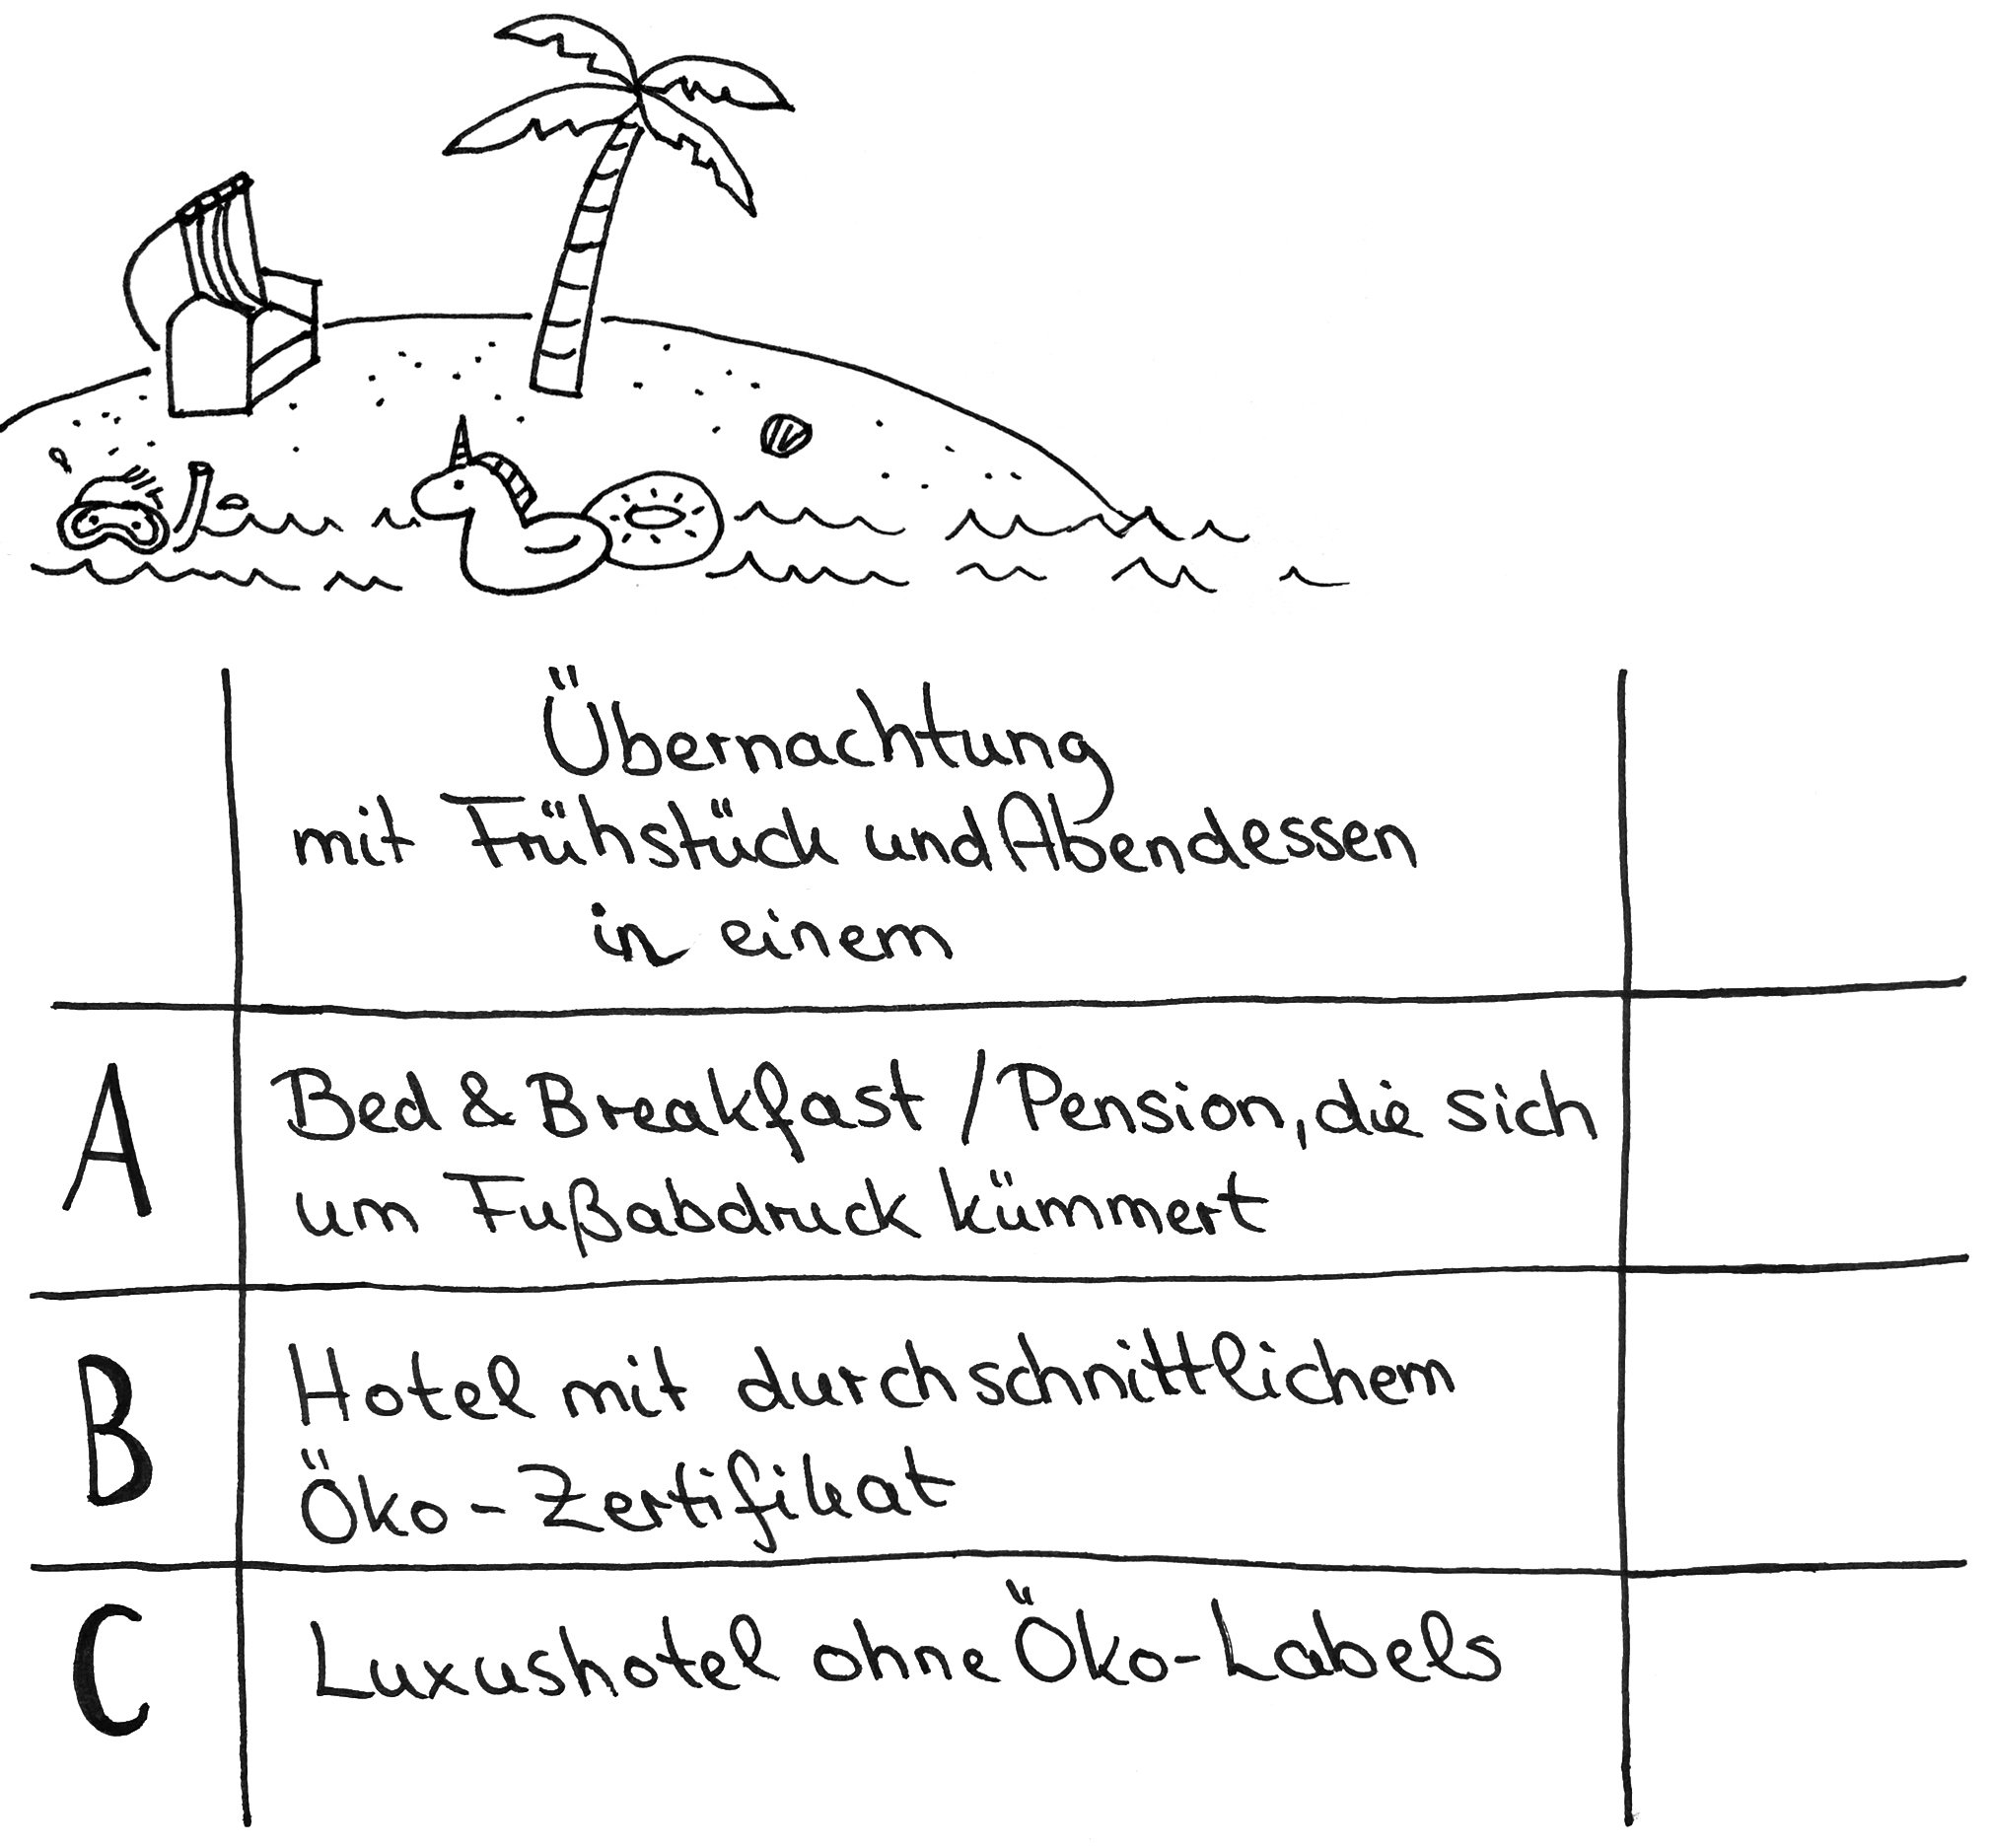 Übernachtung
mit Frühstück und Abendessen
in einem
A
Bed & Breakfast / Pension, die sich
um Fußabdruck kümmert
B
Hotel mit durchschnittlichem
Öko-Zertifikat
C
Luxushotel ohne Öko-Labels